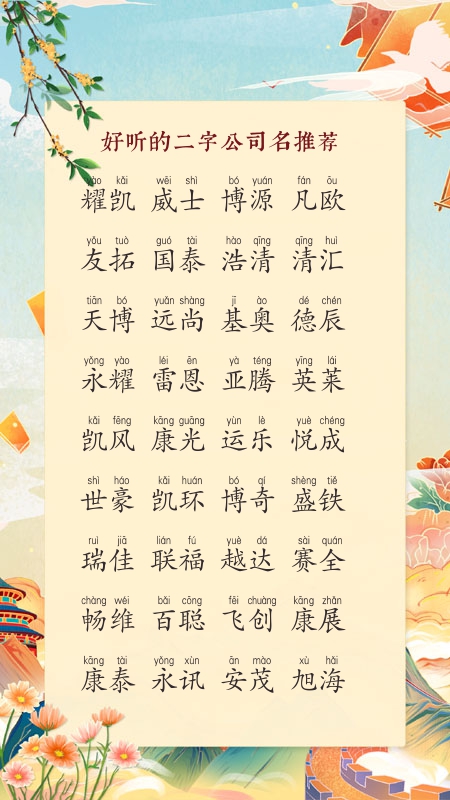 好听的二字公司名推荐
yào kǎi wēi shì bó yuán fán ōu
耀凯 威士 博源 凡欧
yǒu tuò guó tài hào qīng qīng huì
友拓 国泰 浩清 清汇
tiān bó yuǎn shàng jī ào dé chén
天博 远尚 基奥 德辰
yǒng yào léi ēn yà téng yīng lái
永耀 雷恩 亚腾 英莱
kǎi fēng kāng guāng yùn lè yuè chéng
凯风 康光 运乐 悦成
shì háo kǎi huán bó qí shèng tiě
世豪 凯环 博奇 盛铁
ruì jiā lián fú yuè dá sài quán
瑞佳 联福 越达 赛全
chàng wéi bǎi cōng fēi chuàng kāng zhǎn
畅维 百聪 飞创 康展
kāng tài yǒng xùn ān mào xù hǎi
康泰 永讯 安茂 旭海